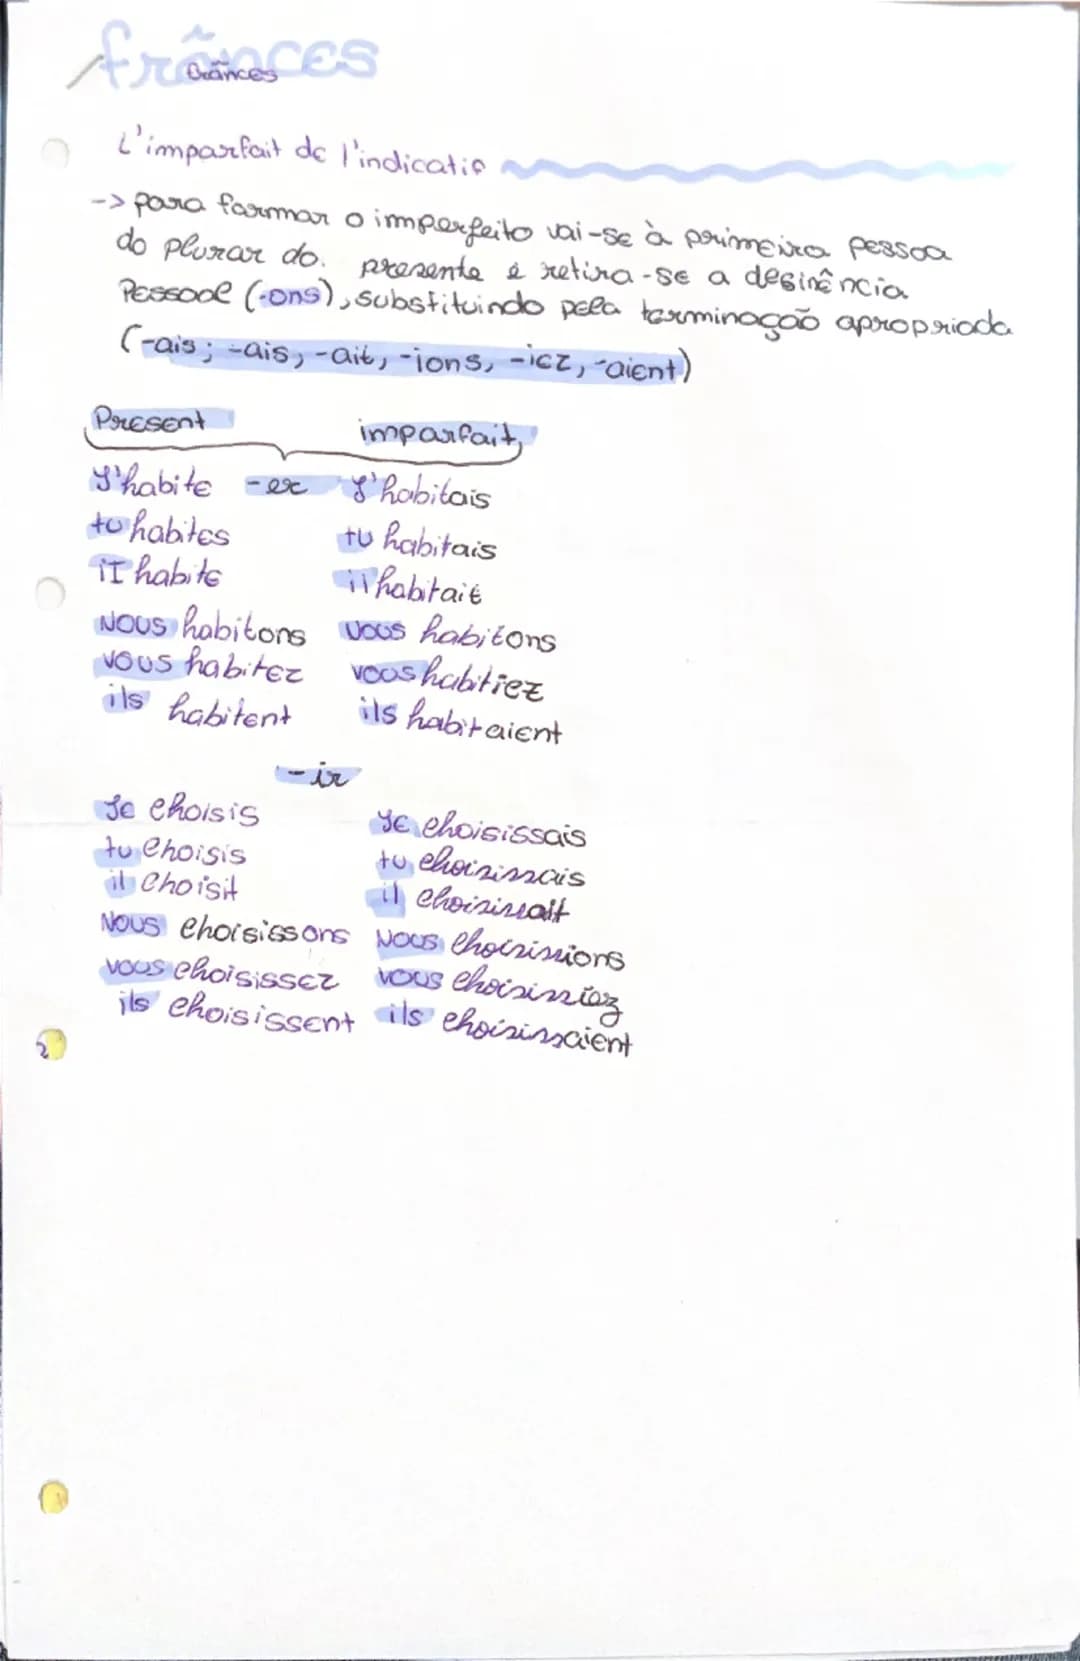 frãnces
frãnces
L'imparfait de l'indicatif
-> para formar o imperfeito vai-se à primeira pessoa
do plurar do. presente e retira-se a desinência
Pessoal (-ons), substituindo pela terminação apropriada
(-ais; -ais, -ait, -ions, -iez, -aient)
Present imparfait,
J'habite -er J'habitais
tu habites tu habitais
il habite il habitait
Nous habitons Vous habitons
vous habitez vous habitiez
ils habitent ils habitaient
-ir
Je choisis Je choisissais
tu choisis tu choisissais
il choisit il choisissait
Nous choisissons Nous choisissions
vous choisissez vous choisissiez
ils choisissent ils choisissaient
2